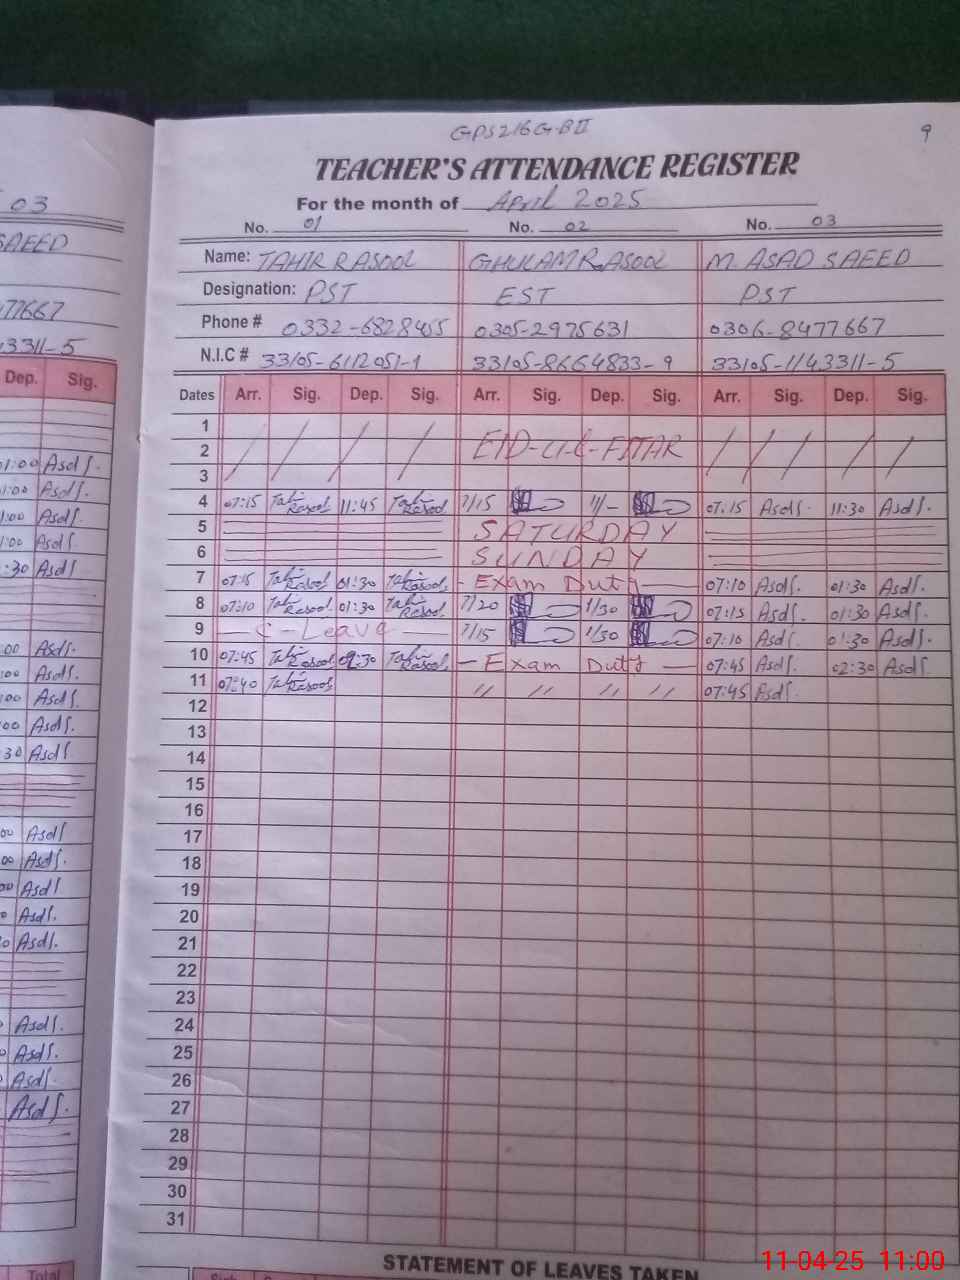 GPS 216 G-B II
9
TEACHER'S ATTENDANCE REGISTER
For the month of April 2025
No. 01 No. 02 No. 03
Name: TAHIR RASOOL GHULAM RASOOL M. ASAD SAEED
Designation: PST EST PST
Phone # 0332-6828455 0305-2975631 0306-8477667
N.I.C # 33105-6112051-1 33105-8664833-9 33105-1143311-5
Dates Arr. Sig. Dep. Sig. Arr. Sig. Dep. Sig. Arr. Sig. Dep. Sig.
1
2 EID-UL-FITAR
3
4 07:15 Tahir Rasool 11:45 Tahir Rasool 7/15 11/- 07:15 Asdf. 11:30 Asdf.
5 SATURDAY
6 SUNDAY
7 07:15 Tahir Rasool 01:30 Tahir Rasool - Exam Duty 07:10 Asdf. 01:30 Asdf.
8 07:10 Tahir Rasool 01:30 Tahir Rasool 7/20 1/30 07:15 Asdf. 01:30 Asdf.
9 C-Leave 7/15 1/30 07:10 Asdf. 01:30 Asdf.
10 07:45 Tahir Rasool 02:30 Tahir Rasool - Exam Duty 07:45 Asdf. 02:30 Asdf.
11 07:40 Tahir Rasool " " " " 07:45 Asdf.
12
13
14
15
16
17
18
19
20
21
22
23
24
25
26
27
28
29
30
31
STATEMENT OF LEAVES TAKEN
03
SAEED
77667
3311-5
Dep. Sig.
01:00 Asdf.
1:00 Asdf.
:00 Asdf.
1:00 Asdf.
:30 Asdf.
:00 Asdf.
:00 Asdf.
:00 Asdf.
:00 Asdf.
30 Asdf.
00 Asdf
00 Asdf.
00 Asdf
0 Asdf.
0 Asdf.
Asdf.
0 Asdf.
Asdf.
Asdf.
Total
11-04-25 11:00